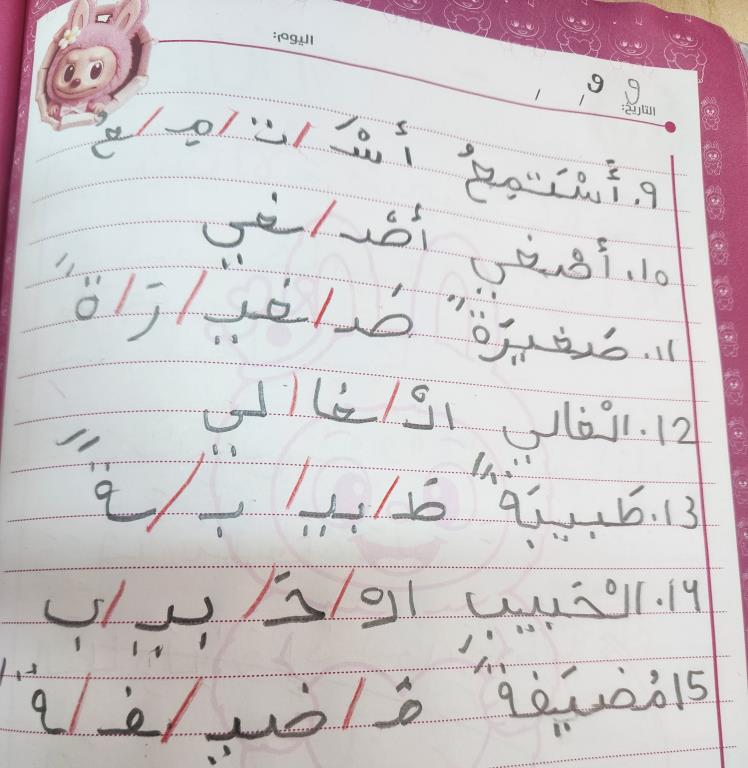 اليوم:
التاريخ: / / و و
9. أَسْتَمِعُ أَسْ / تَـ / مِـ / عُ
10. أصْغي أصْـ / ـغي
11. صَغيرَةٌ صَـ / ـغيـ / رَ / ةٌ
12. الْغالي الْـ / غا / لي
13. طَبيبَةٌ طَـ / بيـ / بـ / ـةٌ
14. الْحَبيبِ الْـ / حَـ / بيـ / ب
15 مُضيَفةٌ مُـ / ضيـ / ـفـ / ةٌ